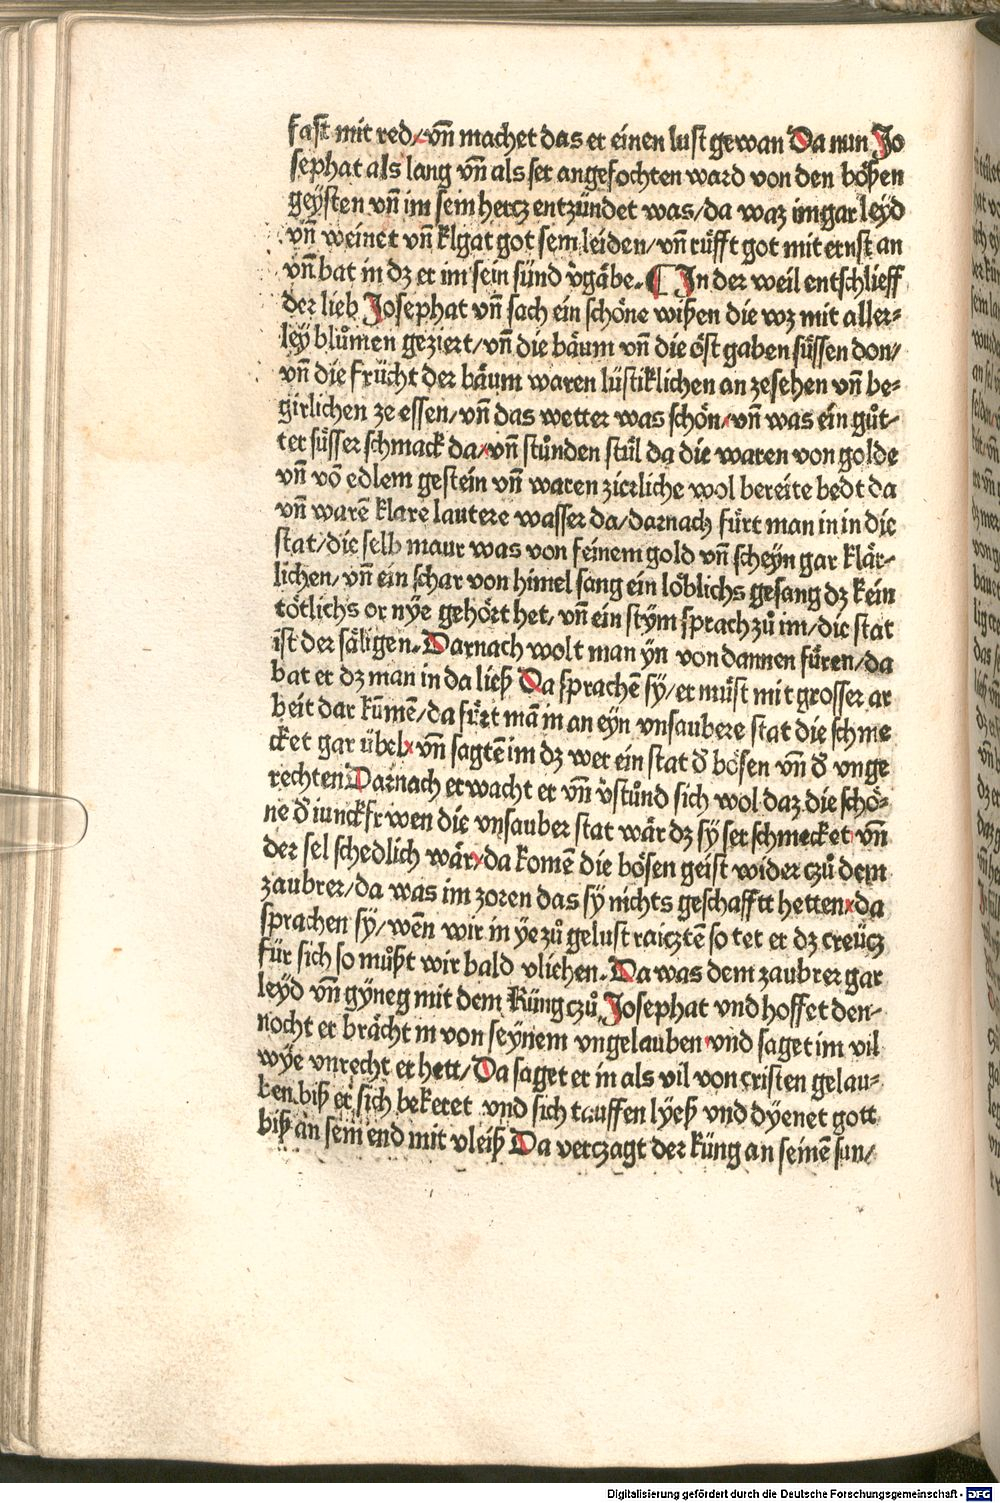 fast mit red / vñ machet das er einen lust gewan Da nun Jo
sephat als lang vñ als ser angefochten ward von den bößen
geysten vñ im sein hercz entzündet was / da waz im gar leyd
vñ weinet vñ klgat got sein leiden / vñ rüfft got mit ernst an
vñ bat in dz er im sein sünd v̄gäbe. ¶ In der weil entschlieff
der lieb Josephat vñ sach ein schöne wißen die wz mit aller⸗
ley blůmen geziert / vñ die bäum vñ die öst gaben süssen don /
vñ die frücht der bäum waren lüstiklichen an zesehen vñ be⸗
girlichen ze essen / vñ das wetter was schön / vñ was ein gůt⸗
ter süsser schmack da / vñ stůnden stül da die waren von golde
vñ võ edlem gestein vñ waren zierliche wol bereite bedt da
vñ warē klare lautere wasser da / darnach fürt man in in die
stat / die selb maur was von feinem gold vñ scheyn gar klär⸗
lichen / vñ ein schar von himel sang ein löblichs gesang dz kein
tötlichs or nye gehört het, vñ ein stym sprach zů im / die stat
ist der säligen. Darnach wolt man yn von dannen füren / da
bat er dz man in da ließ Da sprachē sy / er müst mit grosser ar
beit dar kūmē / da fürt mā in an eyn vnsaubere stat die schme
cket gar übel vñ sagtē im dz wer ein stat d̄ bösen vñ d̄ vnge
rechten Darnach erwacht er vñ v̄stůnd sich wol daz die schö⸗
ne d̄ iunckfrwen die vnsauber stat wär dz sy ser schmecket vñ
der sel schedlich wär / da komē die bösen geist wider czů dem
zaubrer / da was im zoren das sy nichts geschafftt hetten / da
sprachen sy / wēn wir in ye zů gelust raicztē so tet er dz creücz
für sich so můßt wir bald vliehen. Da was dem zaubrer gar
leyd vñ gyneg mit dem Küng czů Josephat vnd hoffet den⸗
nocht er brächt in von seynem vngelauben vnd saget im vil
wye vnrecht er hett / Da saget er in als vil von cristen gelau⸗
ben biß er sich bekeret vnd sich tauffen lyeß vnd dyenet gott
biß an sein end mit vleiß Da verczagt der küng an seinē sun /
Digitalisierung gefördert durch die Deutsche Forschungsgemeinschaft - DFG